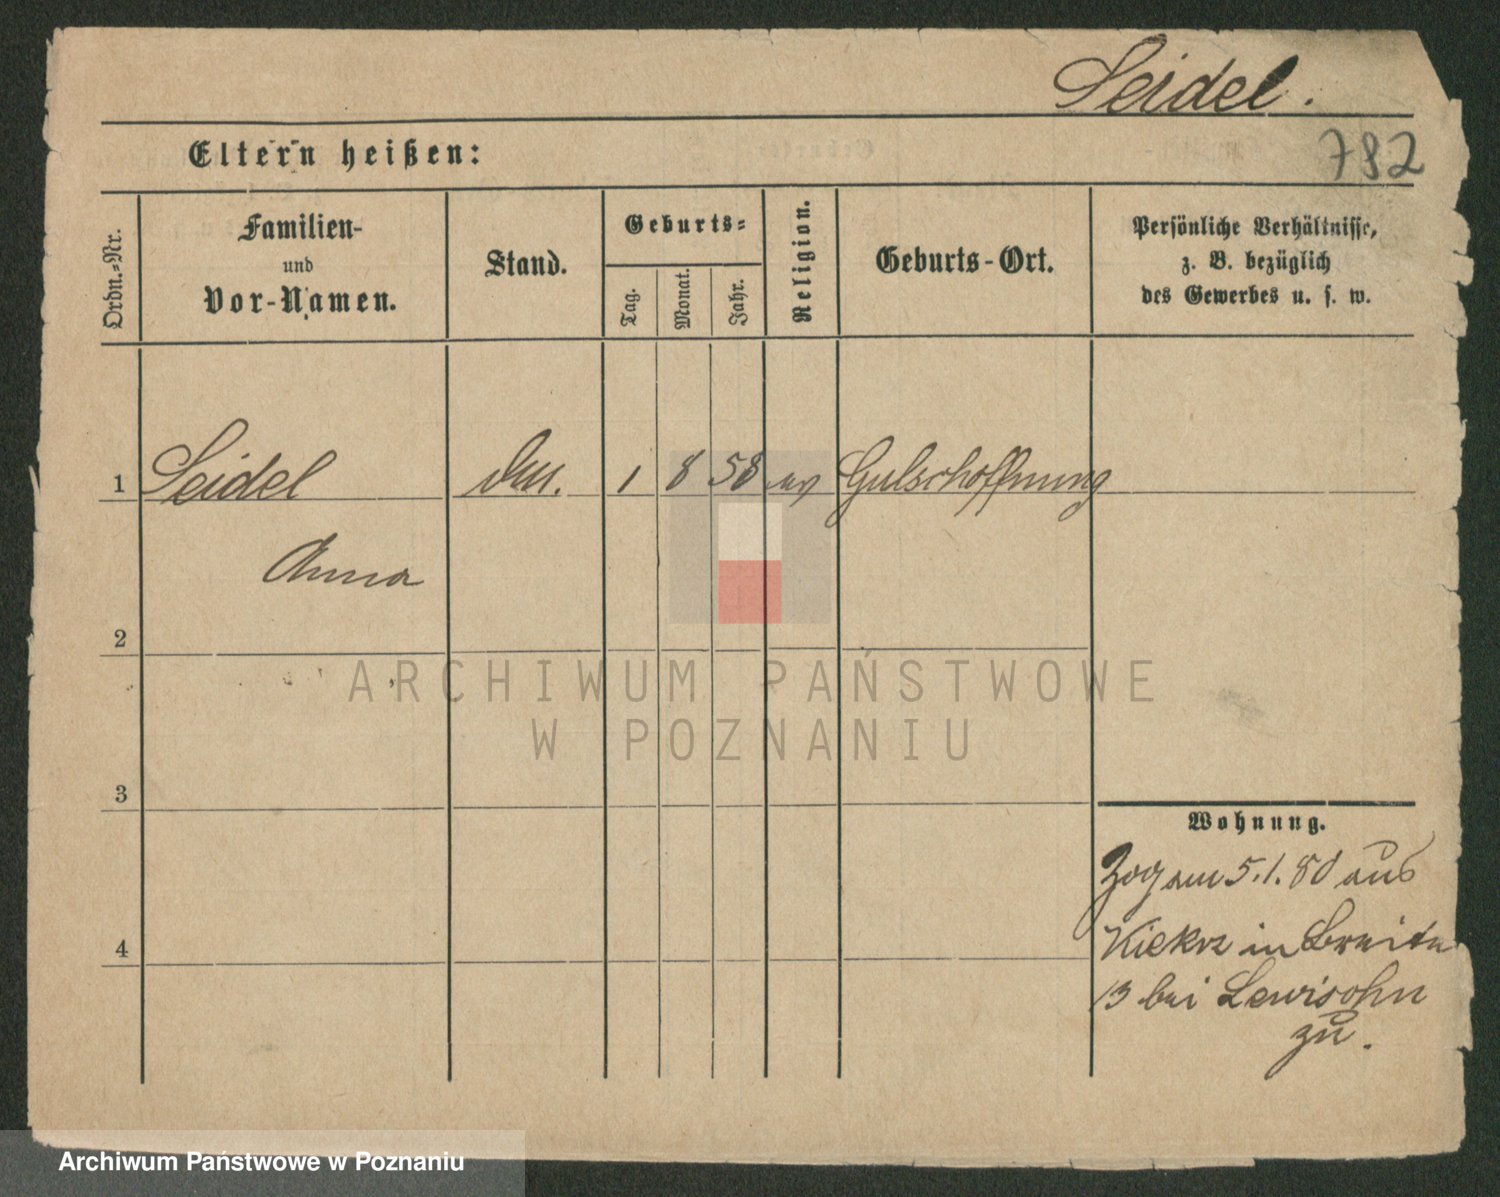 Seidel.
782
Eltern heißen:
Ordn.=Nr.
Familien-
und
Vor-Namen.
Stand.
Geburts=
Tag.
Monat.
Jahr.
Religion.
Geburts-Ort.
Persönliche Verhältnisse,
z. B. bezüglich
des Gewerbes u. s. w.
1 Seidel 1 8 58 ev Gulschoffnung
Anna
2
ARCHIWUM PAŃSTWOWE
W POZNANIU
3
Wohnung.
Zog am 5.1.80 aus
Kiekrz in Breite
4
13 bei Lewisohn
zu.
Archiwum Państwowe w Poznaniu